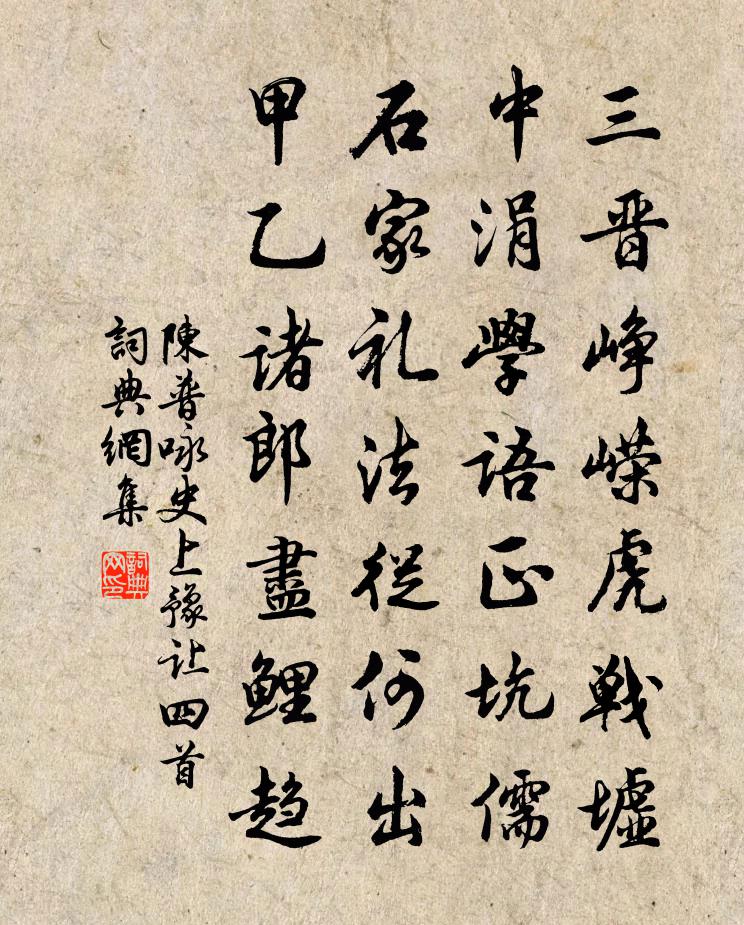 三晋峥嵘虎戦墟
中涓學語正坑儒
石家礼法從何出
甲乙诸郎盡鲤趋
陳普咏史上豫让四首
詞典網集
詞典网印